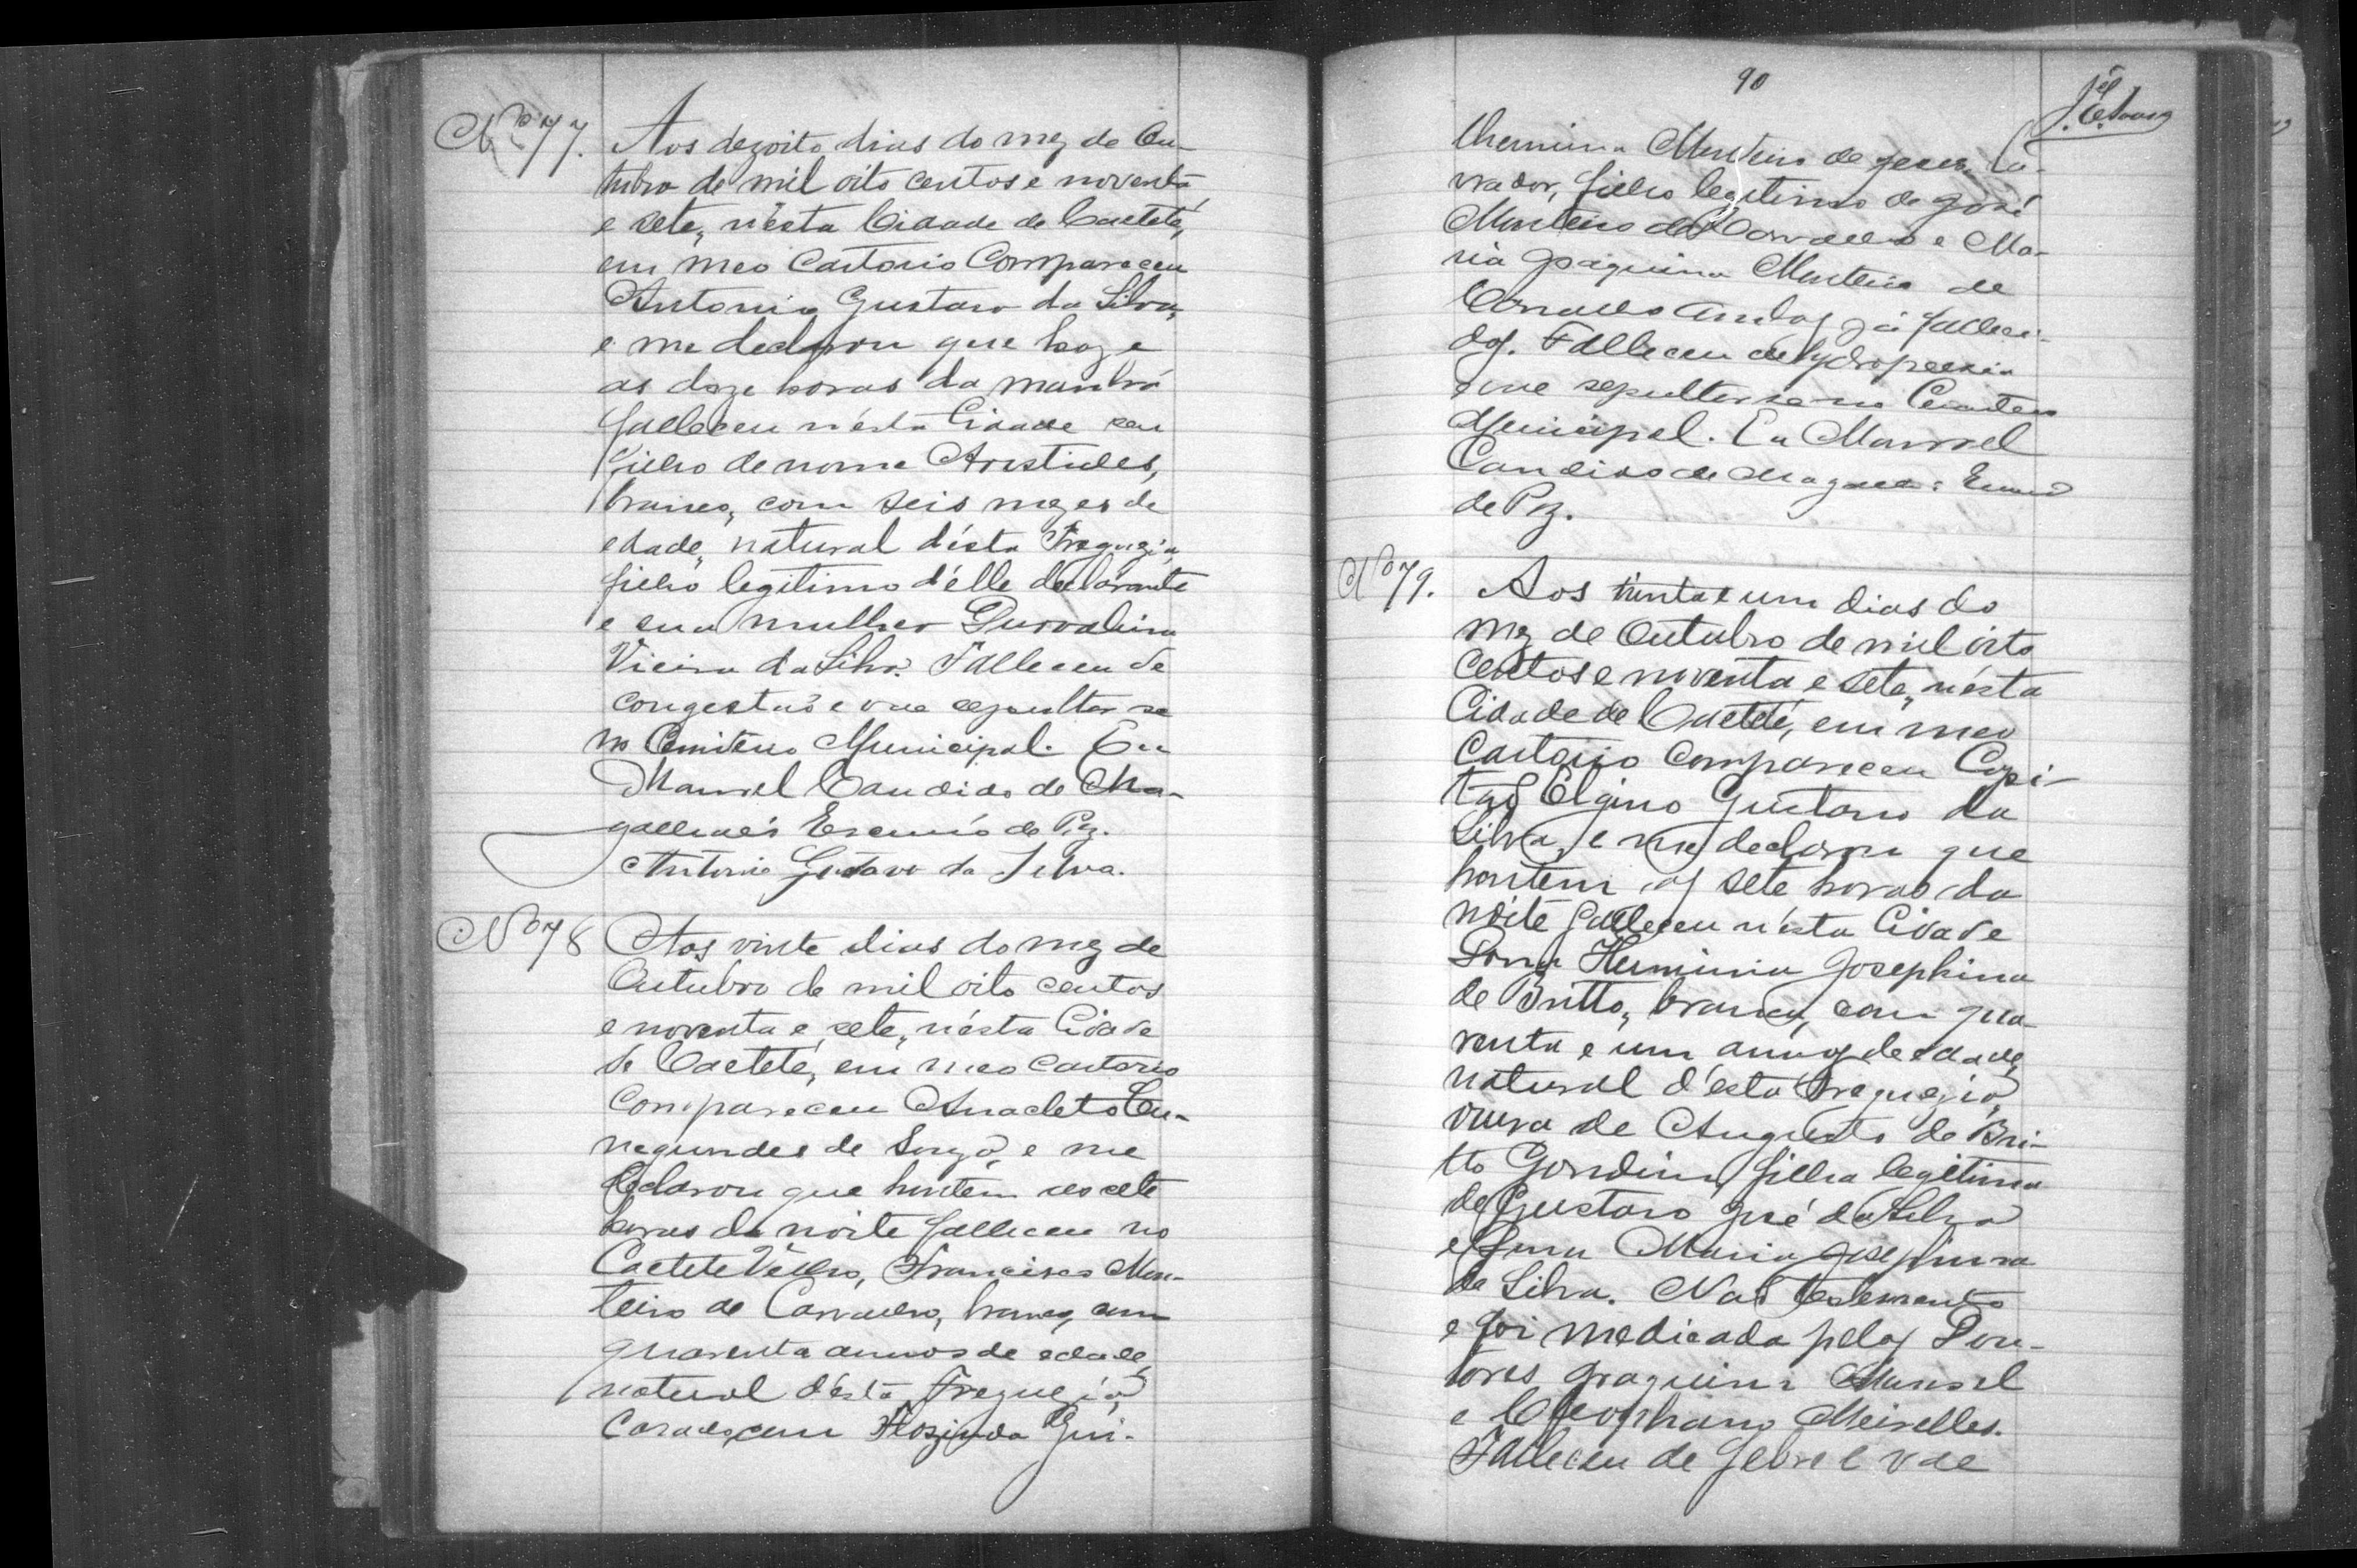 Nº 77. Aos dezoito dias do mez de Ou-
tubro de mil oito centos e noventa
e sete, n'ésta Cidade de Caeteté,
em meo Cartorio Compareceu
Antonio Gustavo da Silva,
e me declarou que hoje
as doze horas da manhã
falleceu n'ésta Cidade seu
filho de nome Aristides,
branco, com seis mezes de
edade, natural d'ésta Freguezia,
filho legitimo d'élle declarante
e sua mulher Durvalina
Vieira da Silva. Falleceu de
congestaõ e vae sepultar-se
no Cemiterio Municipal. Eu
Manoel Candido de Ma-
galhaẽs Escrivaõ de Paz.
Antonio Gustavo da Silva.
Nº 78 Aos vinte dias do mez de
Outubro de mil oito centos
e noventa e sete, n'ésta Cidade
de Caeteté, em meo cartorio
compareceu Anacleto Cu-
negundes de Souza, e me
declarou que hontem as sete
horas da noite falleceu no
Caeteté Velho, Francisco Mon-
teiro de Carvalho, branco, com
quarenta annos de edade,
natural d'ésta Freguezia,
casado com Flozinda Gui-
90
lhermina Monteiro de Jesus, La-
vrador, filho legitimo de José
Monteiro de Carvalho e Ma-
ria Joaquina Monteiro de
Carvalho ambos já falleci-
dos. Falleceu de hydropesia
e vae sepultar-se no Cemiterio
Municipal. Eu Manoel
Candido de Magalhaẽs Escrivaõ
de Paz.
Nº 79. Aos trinta e um dias do
mez de Outubro de mil oito
centos e noventa e sete, n'ésta
Cidade de Caeteté, em meo
cartorio compareceu Capi-
taõ Elgino Gustavo da
Silva, e me declarou que
hontem as sete horas da
noite falleceu n'ésta Cidade
Dona Herminia Josephina
de Britto, branca, com qua-
renta e um annos de edade,
natural d'ésta Freguezia,
viuva de Augusto de Bri-
tto Gondim, filha legitima
de Gustavo José da Silva
e Dona Maria Josephina
da Silva. Naõ testamento
e foi medicada pelos Dou-
tores Joaquim Manoel
e Cleophano Meirelles.
Falleceu de febre e vae